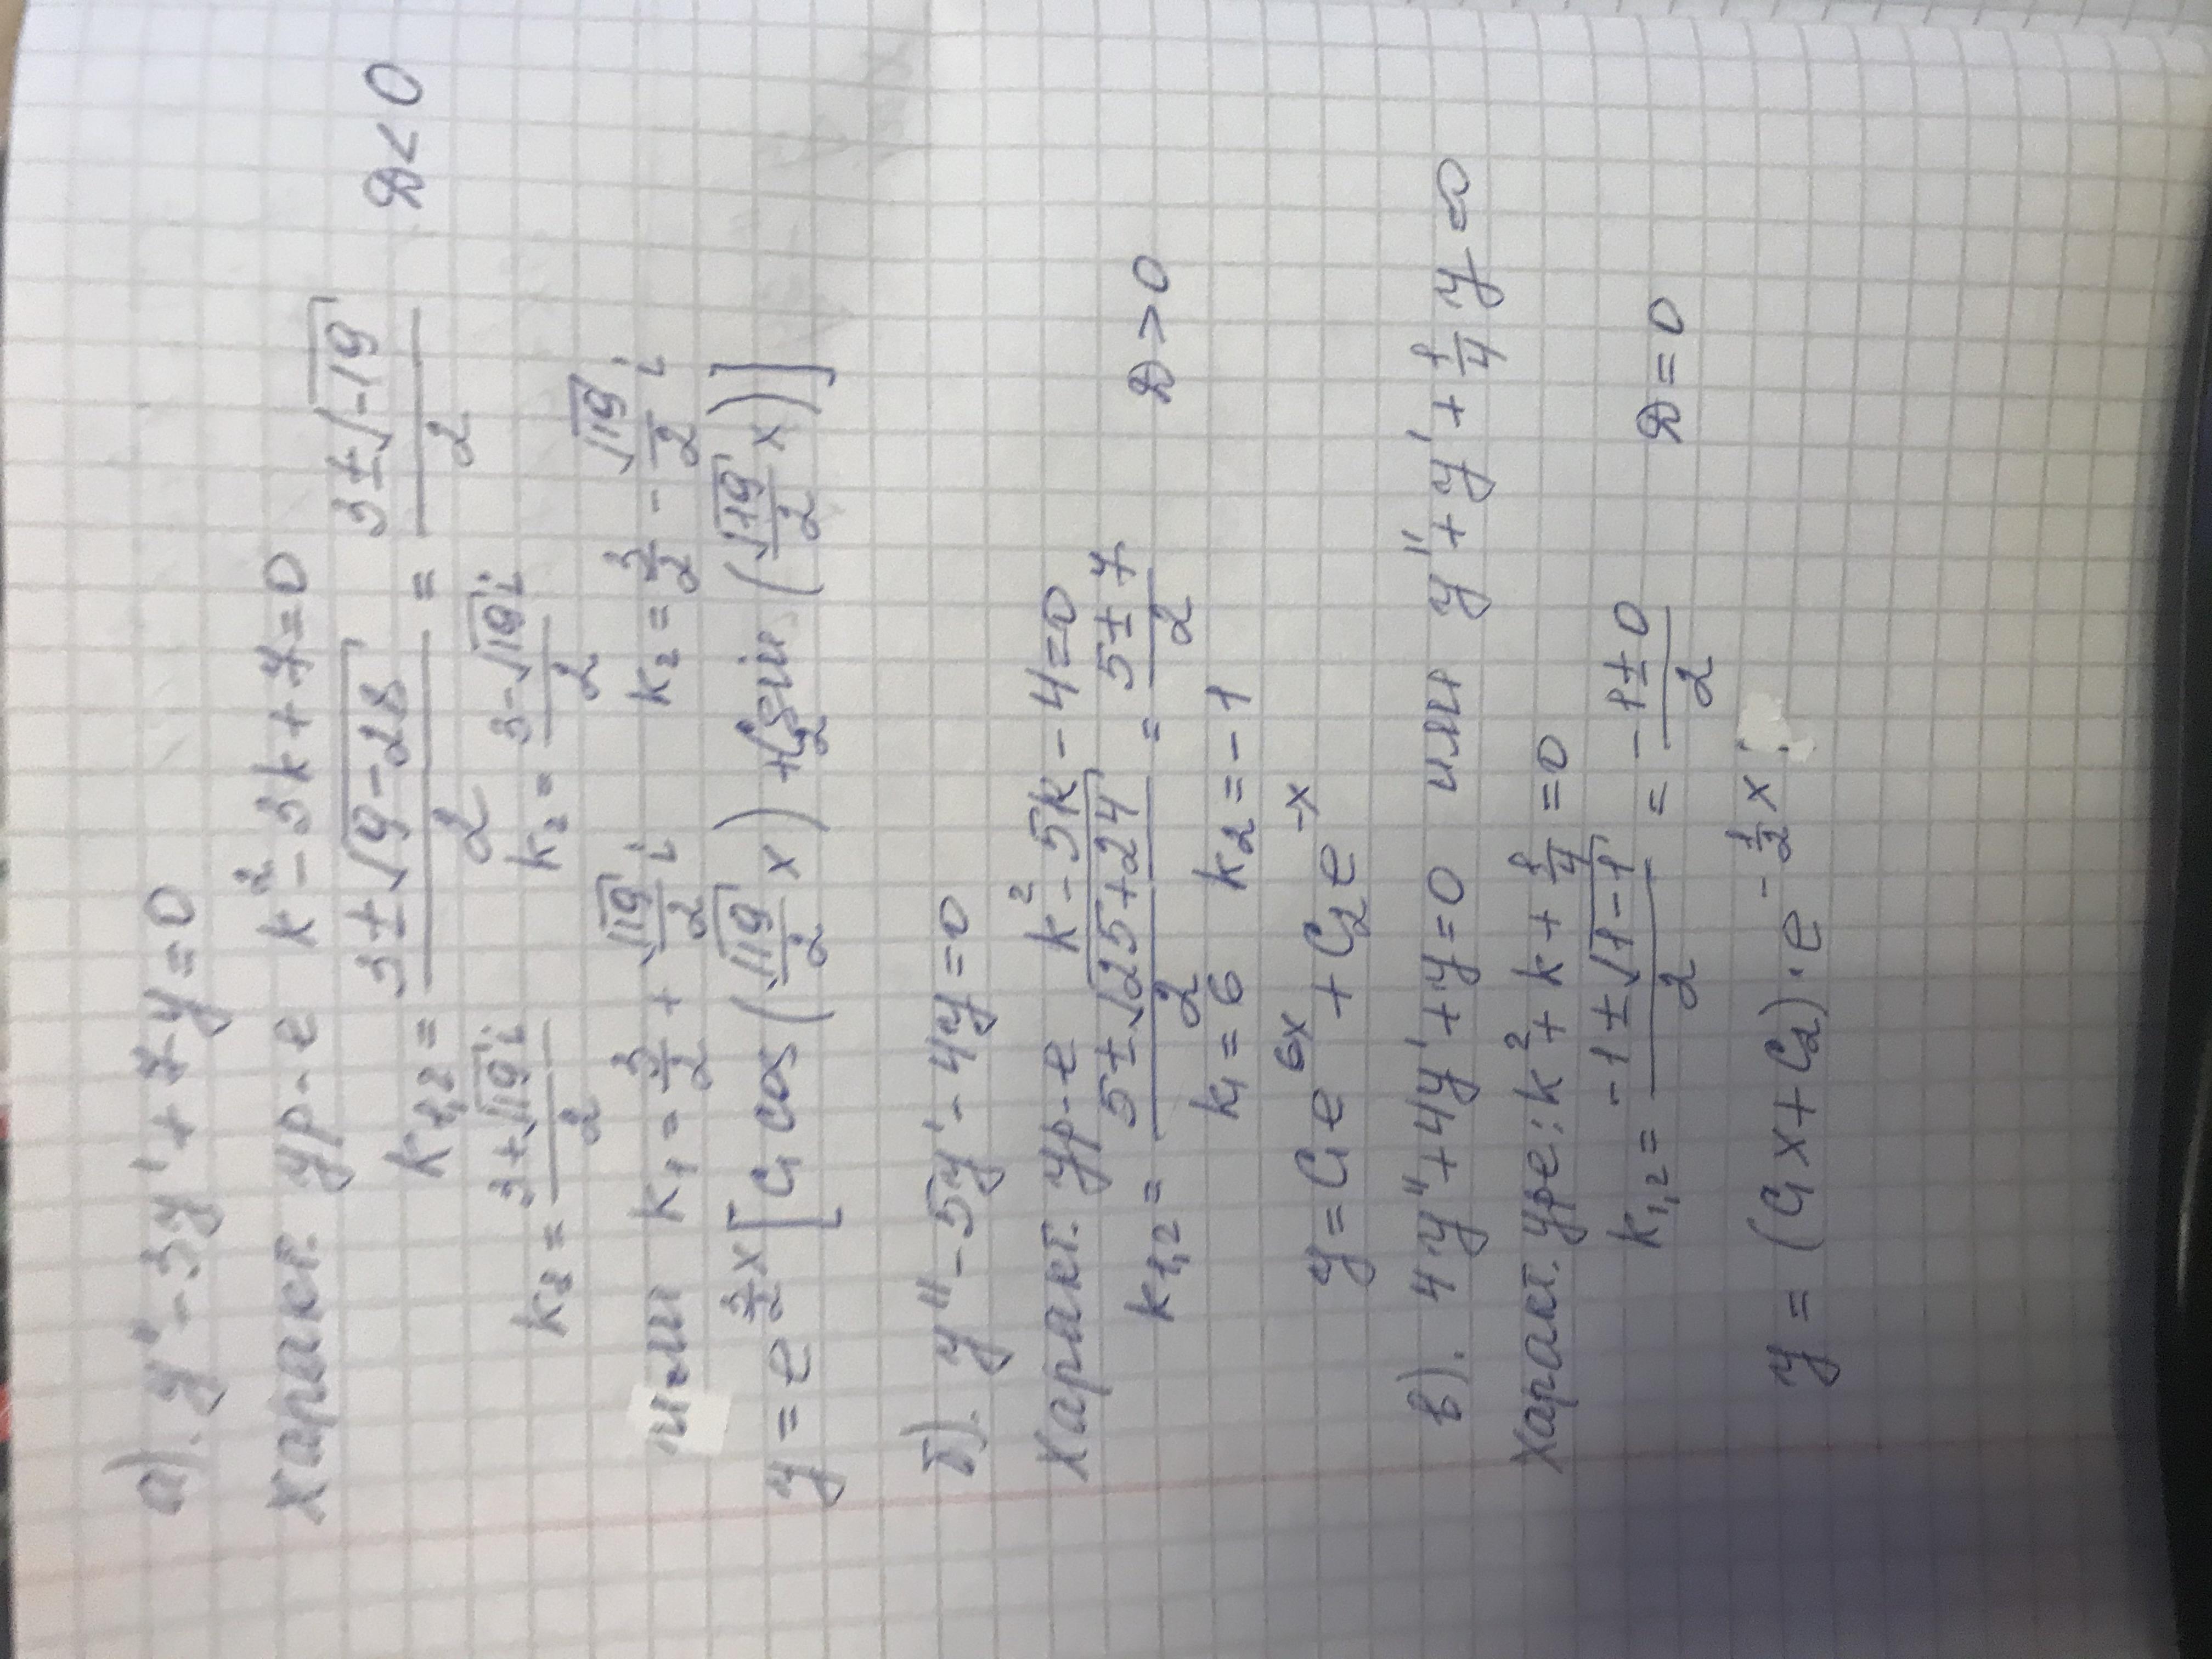 а). y'' - 3y' + 7y = 0
Характ. ур-е k² - 3k + 7 = 0
k₁,₂ = (3 ± √(9 - 28))/2 = (3 ± √(-19))/2 D < 0
k₂ = (3 + √19 i)/2 k₂ = (3 - √19 i)/2
или k₁ = 3/2 + √19/2 i k₂ = 3/2 - √19/2 i
y = e^(3/2 x) [C₁ cos (√19/2 x) + C₂ sin (√19/2 x)]
б). y'' - 5y' - 4y = 0
Характ. ур-е k² - 5k - 4 = 0
k₁,₂ = (5 ± √(25 + 24))/2 = (5 ± 7)/2 D > 0
k₁ = 6 k₂ = -1
y = C₁e^(6x) + C₂e^(-x)
в). 4y'' + 4y' + y = 0 или y'' + y' + 1/4 y = 0
Характ. уре: k² + k + 1/4 = 0
k₁,₂ = (-1 ± √(1 - 1))/2 = (-1 ± 0)/2 D = 0
y = (C₁x + C₂) · e^(-1/2 x)